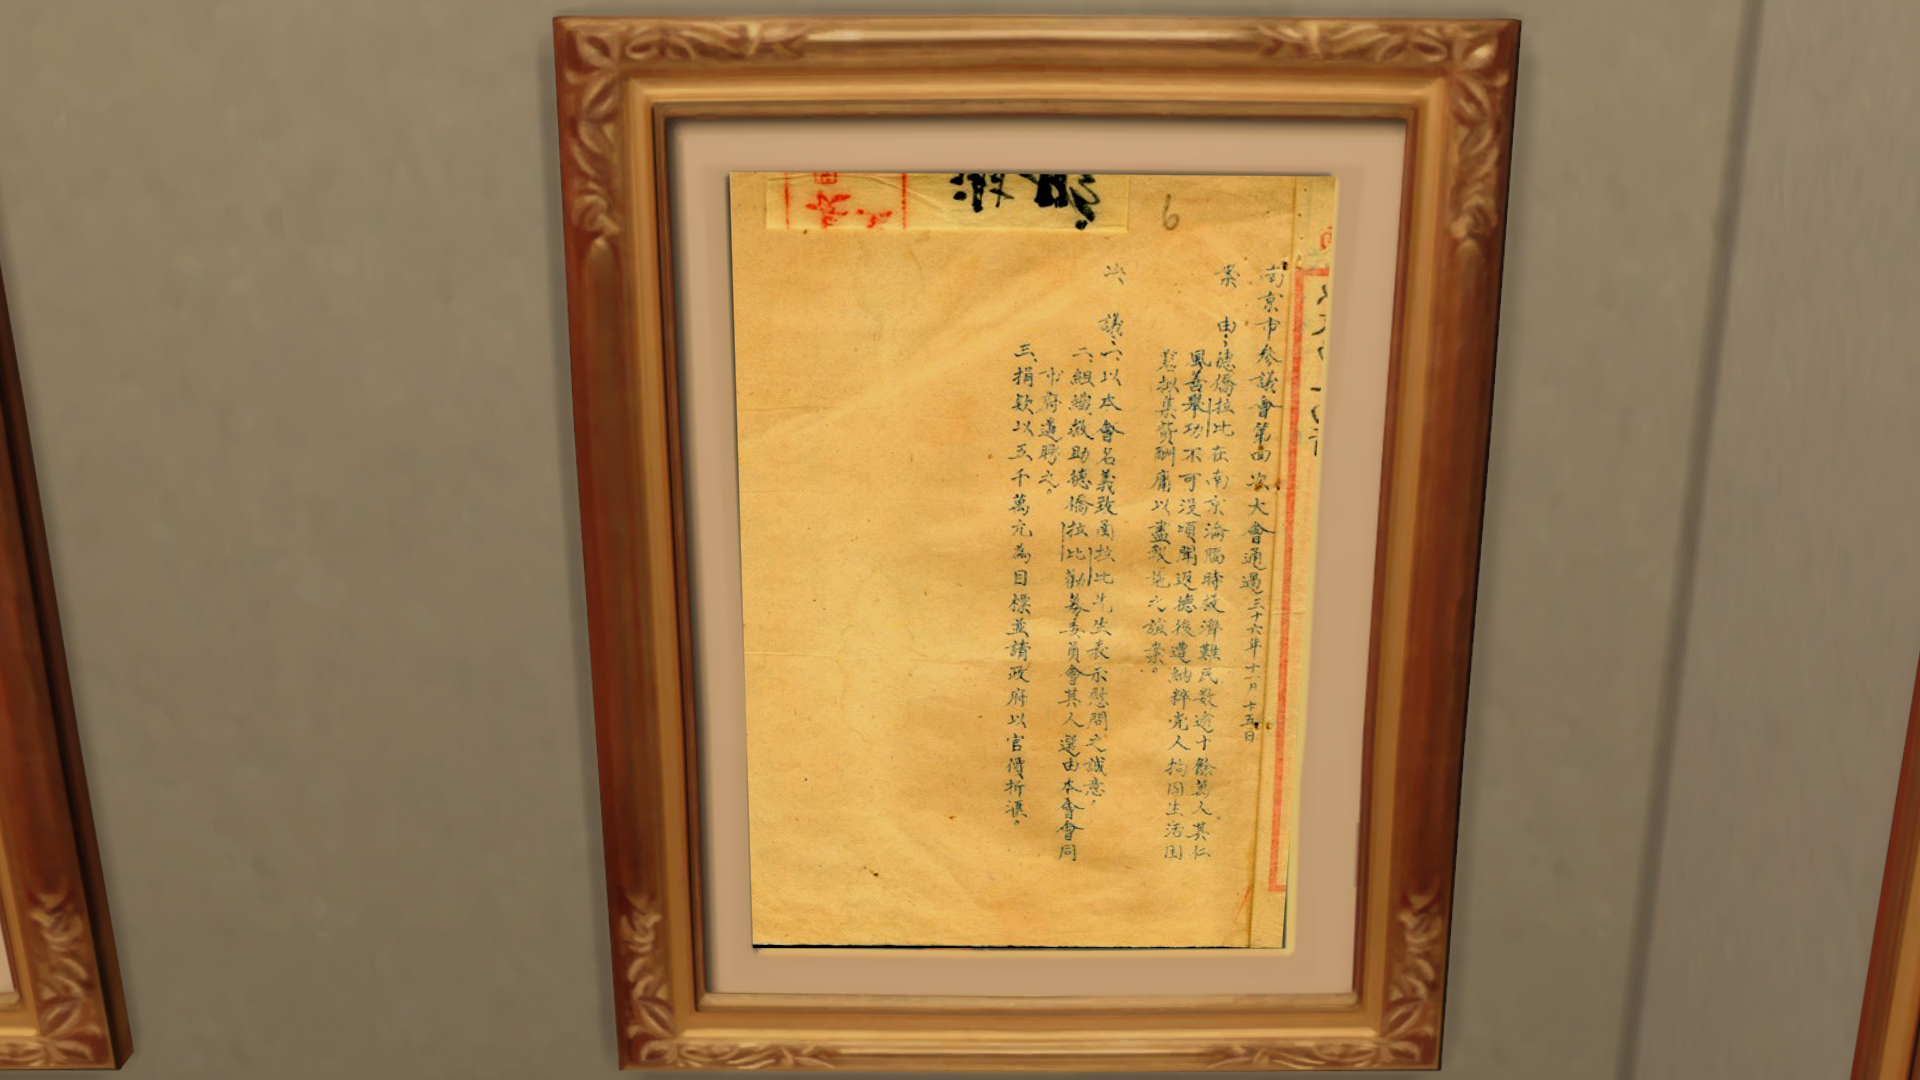 6
南京市參議會第四次大會通過三十六年十一月十五日
案由：德僑拉比在南京淪陷時救濟難民數逾十餘萬人其仁
風善舉功不可沒頃聞返德後遭納粹党人拘囚生活困
窘擬集資酬庸以盡我地之誼案。
決議：一、以本會名義致函拉比先生表示慰問之誠意。
二、組織救助德僑拉比勸募委員會其人選由本會會同
市府遴聘之。
三、捐款以五千萬元為目標並請政府以官價折滙。